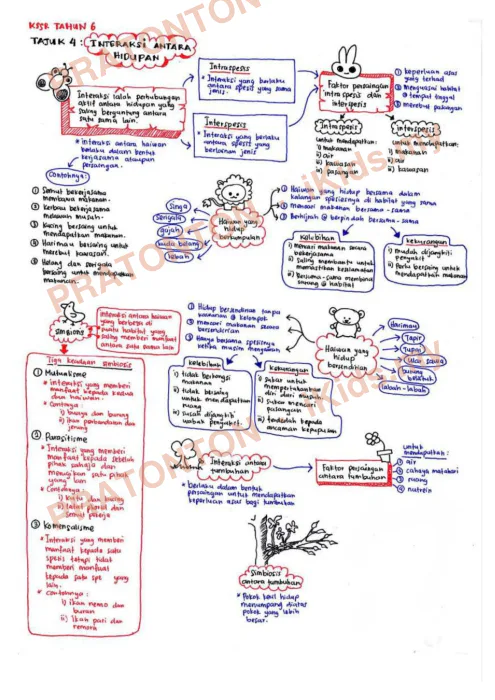 KSSR TAHUN 6
TAJUK 4 : INTERAKSI ANTARA
HIDUPAN
Interaksi ialah perhubungan
aktif antara hidupan yang
saling bergantung antara
satu sama lain.
* interaksi antara haiwan
berlaku dalam bentuk
kerjasama ataupun
persaingan.
Intraspesis
* Interaksi yang berlaku
antara spesis yang sama
jenis.
Interspesis
* Interaksi yang berlaku
antara spesis yang
berlainan jenis
Faktor persaingan
intraspesis dan
interspesis
① keperluan asas
yang terhad
② menguasai habitat
@ tempat tinggal
③ merebut pasangan
Intraspesis
untuk mendapatkan:
i) makanan
ii) air
iii) kawasan
iv) pasangan
interspesis
untuk mendapatkan:
i) makanan
ii) air
iii) kawasan
Contohnya:
① Semut bekerjasama
membawa makanan.
② Kerbau bekerjasama
melawan musuh.
③ Kucing bersaing untuk
mendapatkan makanan.
④ Harimau bersaing untuk
merebut kawasan.
⑤ Helang dan serigala
bersaing untuk mendapatkan
makanan.
Singa
Serigala
gajah
kuda belang
lebah
Haiwan yang
hidup
berkumpulan
① Haiwan yang hidup bersama dalam
kalangan spesiesnya di habitat yang sama
② mencari makanan bersama-sama
③ Berhijrah @ berpindah bersama-sama
Kelebihan
i) mencari makanan secara
bekerjasama
ii) saling membantu untuk
memastikan keselamatan
iii) Bersama-sama membina
sarang @ habitat
kekurangan
i) mudah dijangkiti
penyakit
ii) Perlu bersaing untuk
mendapatkan makanan
simbiosis
interaksi antara haiwan
yang berbeza di
suatu habitat yang
saling memberi manfaat
antara satu sama lain
① Hidup bersendirian tanpa
kawanan @ kelompok
② mencari makanan secara
bersendirian
③ Hanya bersama spesiesnya
ketika musim mengawan
Haiwan yang
hidup
bersendirian
Harimau
Tapir
Tupai
Ular sawa
burung
belatuk
labah-labah
kelebihan
i) tidak berkongsi
makanan
ii) tidak bersaing
untuk mendapatkan
ruang
iii) susah dijangkiti
wabak penyakit.
Kekurangan
i) sukar untuk
mempertahankan
diri dari musuh
ii) sukar mencari
pasangan
iii) terdedah kepada
ancaman kepupusan
Tiga keadaan simbiosis
① Mutualisme
* interaksi yang memberi
manfaat kepada kedua
dua haiwan.
* Contohnya:
i) bunga dan burung
ii) ikan perbandaran dan
jerung
② Parasitisme
* Interaksi yang memberi
manfaat kepada sebelah
pihak sahaja dan
merugikan satu pihak
yang lain
* Contohnya:
i) kutu dan kucing
ii) lalat phorid dan
semut pekerja
③ Komensalisme
* Interaksi yang memberi
manfaat kepada satu
spesis tetapi tidak
memberi manfaat
kepada satu spe yang
lain.
* contohnya:
i) ikan nemo dan
buran
ii) Ikan pari dan
remora
Interaksi antara
tumbuhan
* Berlaku dalam bentuk
persaingan untuk mendapatkan
keperluan asas bagi tumbuhan
Faktor persaingan
antara tumbuhan
untuk
mendapatkan:
① air
② cahaya matahari
③ ruang
④ nutrien
Simbiosis
antara tumbuhan
* Pokok kecil hidup
menumpang diatas
pokok yang lebih
besar.